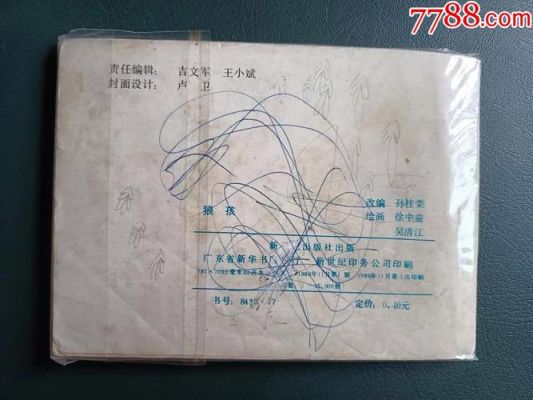 7788.com
责任编辑： 吉文军 王小斌
封面设计： 卢 卫
狼 孩
改编 孙桂荣
绘画 徐中益
吴清江
新 出版社出版
广东省新华书 新世纪印务公司印刷
787×1092毫米 1版 1986年11月第1次印刷
书号： 84 17
定价：0.40元